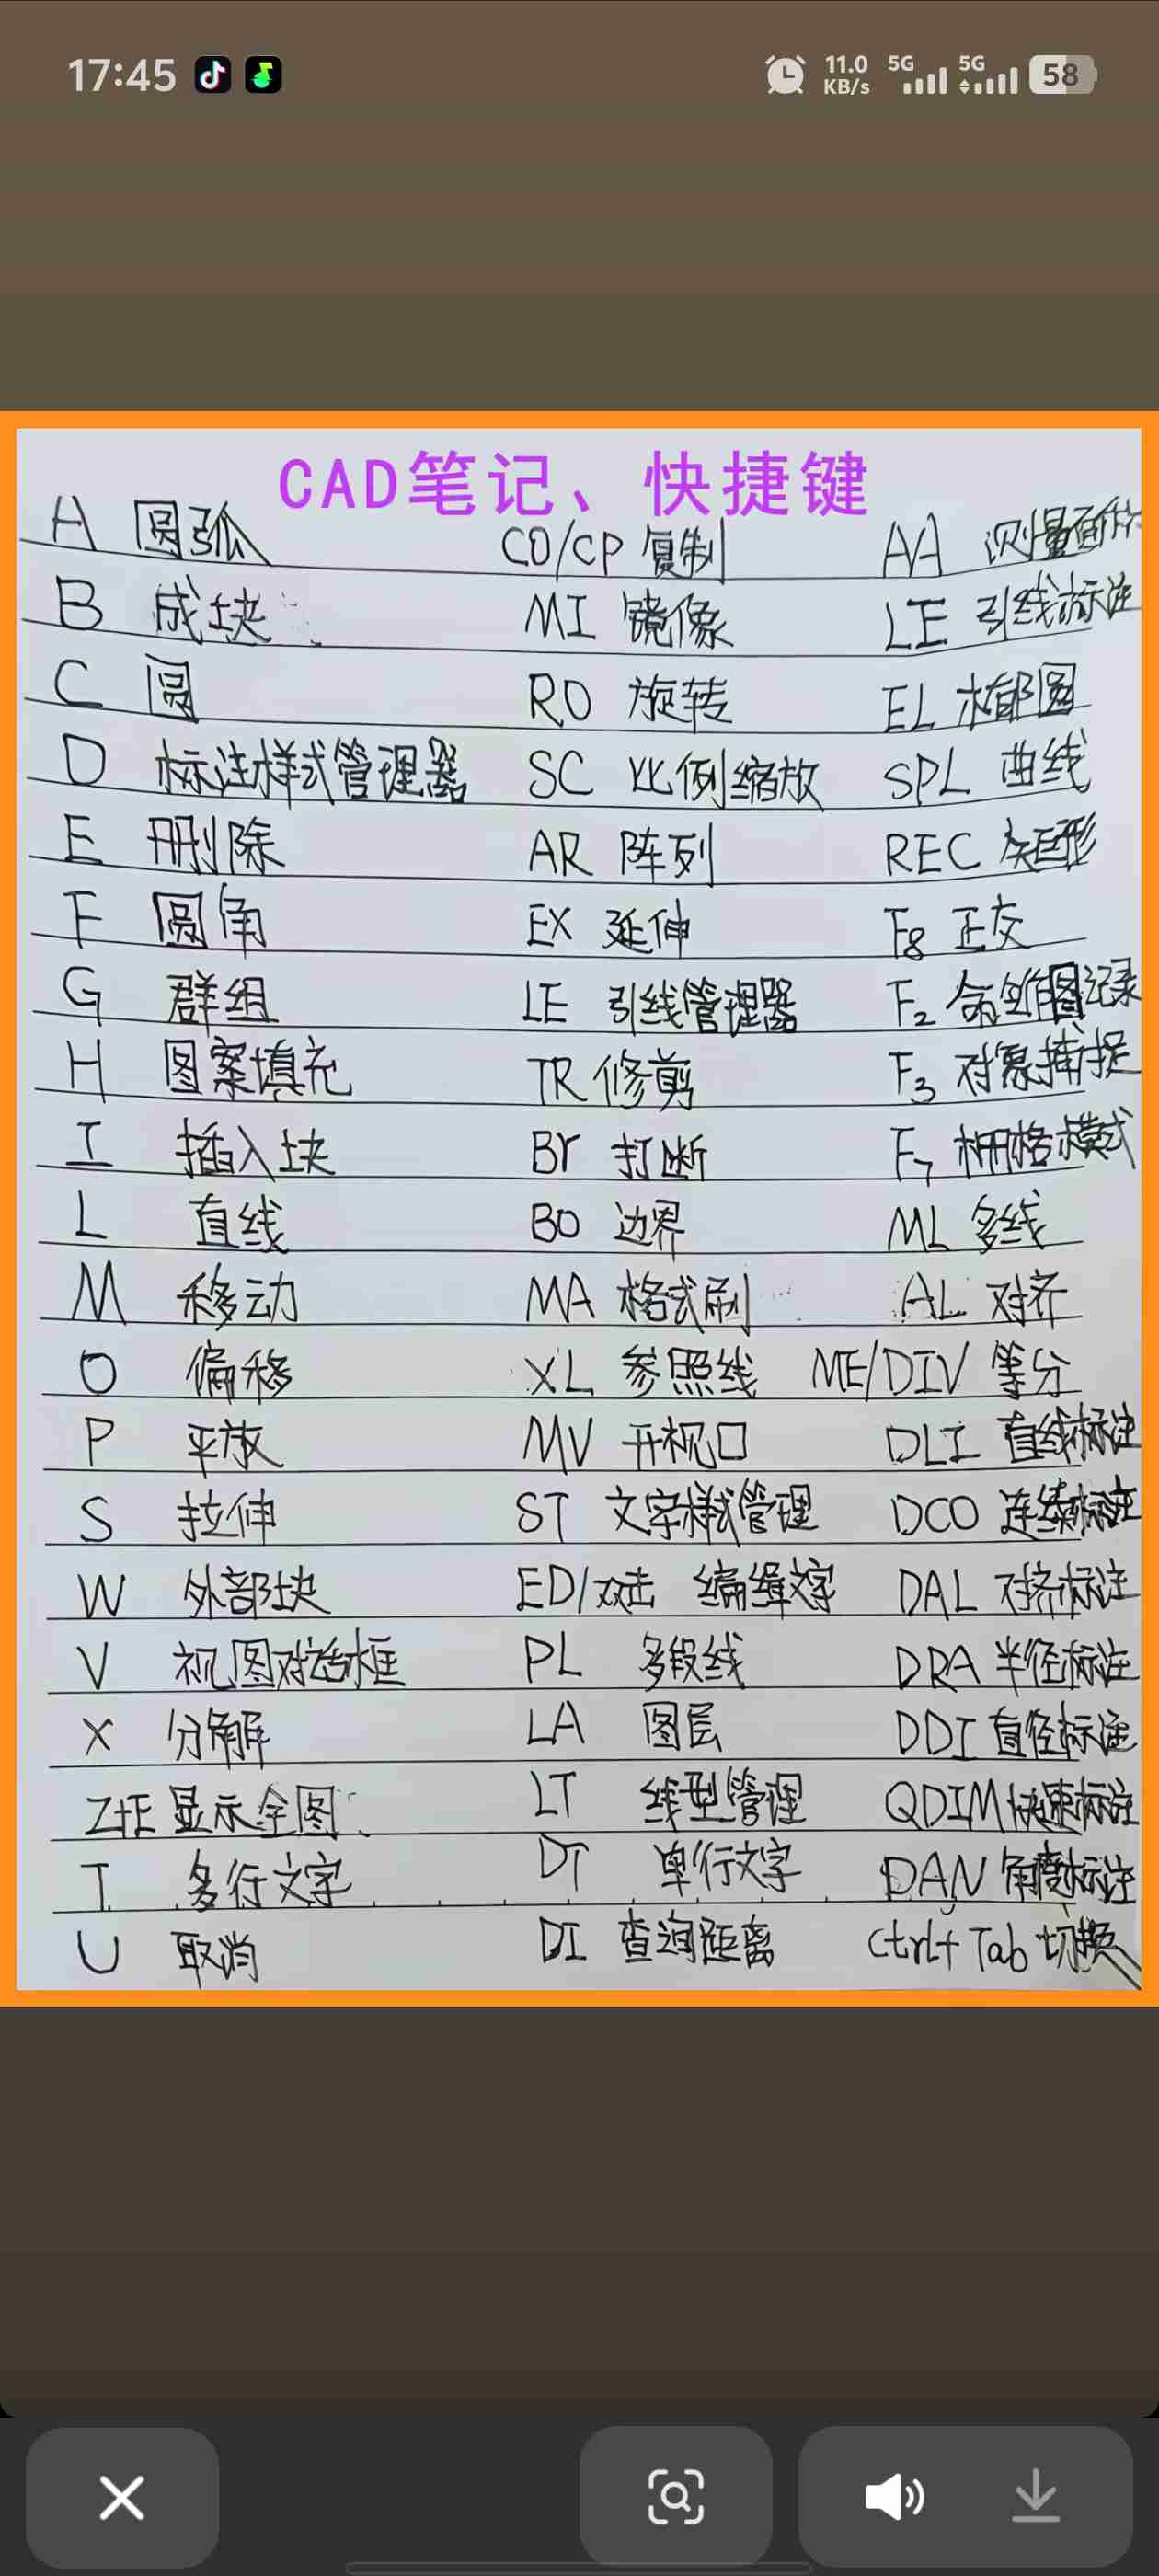 17:45 11.0 KB/s 5G 5G 58
CAD笔记、快捷键
A 圆弧 CO/CP 复制 AA 测量面积
B 成块 MI 镜像 LE 引线标注
C 圆 RO 旋转 EL 椭圆
D 标注样式管理器 SC 比例缩放 SPL 曲线
E 删除 AR 阵列 REC 矩形
F 圆角 EX 延伸 F8 正交
G 群组 LE 引线管理器 F2 命令作图记录
H 图案填充 TR 修剪 F3 对象捕捉
I 插入块 Br 打断 F7 栅格模式
L 直线 BO 边界 ML 多线
M 移动 MA 格式刷 AL 对齐
O 偏移 XL 参照线 ME/DIV 等分
P 平放 MV 开视口 DLI 直线标注
S 拉伸 ST 文字样式管理 DCO 连续标注
W 外部块 ED/双击 编辑文字 DAL 对齐标注
V 视图对话框 PL 多段线 DRA 半径标注
X 分解 LA 图层 DDI 直径标注
Z+E 显示全图 LT 线型管理 QDIM 快速标注
T 多行文字 DT 单行文字 DAN 角度标注
U 取消 DI 查询距离 Ctrl+Tab 切换